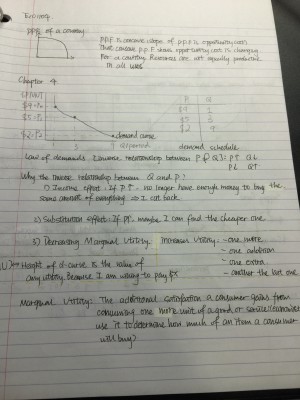 P.P.F. of a country
P.P.F is concave slope of P.P.F is opportunity cost
That concave P.P.F shows opportunity cost is changing
For a country Resources are not equally productive
in all uses
Chapter 4
$P/unit
P Q
$9
$5
$2 9
demand curve
Q/period
demand schedule
Law of demands: Inverse relationship between P & Q: P↑ Q↓
P↓ Q↑
Why the inverse relationship between Q and P?
① Income effect: If P↑. no longer have enough money to buy the
same amount of everything ⇒ I cut back
2) Substitution effect: If P↑. maybe I can find the cheaper one
3) Decreasing Marginal Utility: - one more
- one addition
- one extra
- another the last one
Height of d-curve is the value of
any utility. Because I am willing to pay $x
Marginal Utility: The additional satisfaction a consumer gains from
consuming one more unit of a good or service. Economists
use it to determine how much of an item a consumer
will buy?